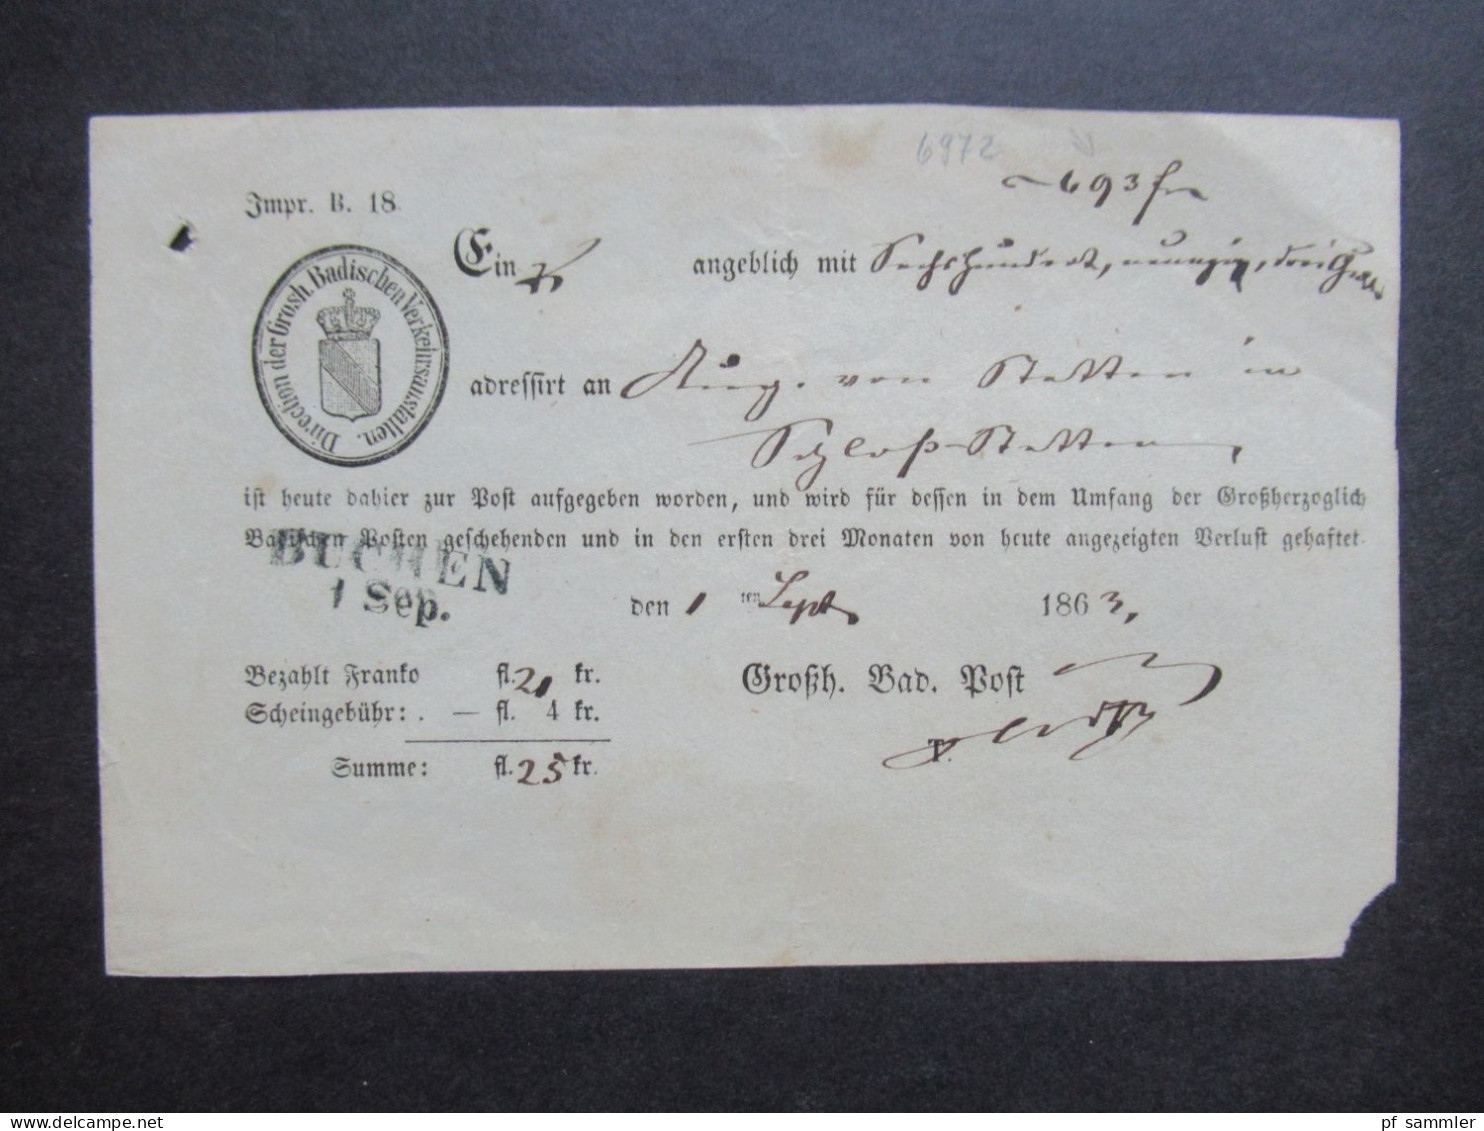 6972
693 fr
Impr. B. 18.
Direction der Grosh. Badischen Verkehrsanstalten.
Ein angeblich mit Sechshundert, neunzig, drei
adressirt an Aug. von Stetten in
Schloß-Stetten,
ist heute dahier zur Post aufgegeben worden, und wird für dessen in dem Umfang der Großherzoglich
Badischen Posten geschehenden und in den ersten drei Monaten von heute angezeigten Verlust gehaftet.
BUCHEN
1 Sep.
den 1 ten Sept 1863,
Bezahlt Franko fl. 21 kr. Großh. Bad. Post
Scheingebühr: . — fl. 4 kr.
T.
Summe: fl. 25 kr.
www.delcampe.net
pf_sammler